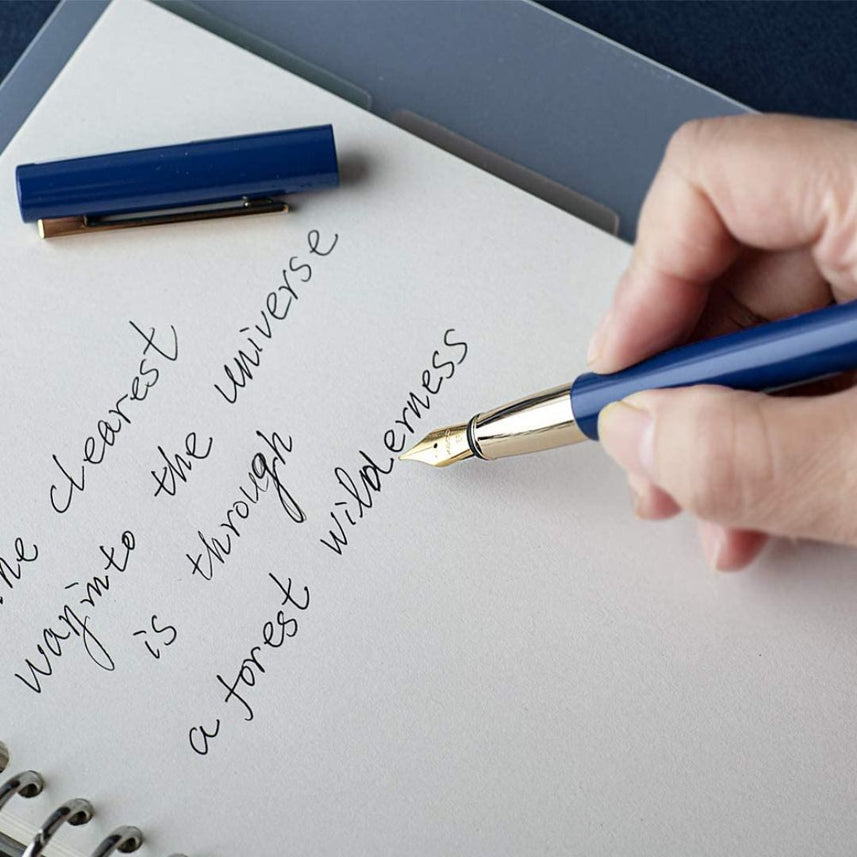 he clearest
way into the universe
is through
a forest wilderness